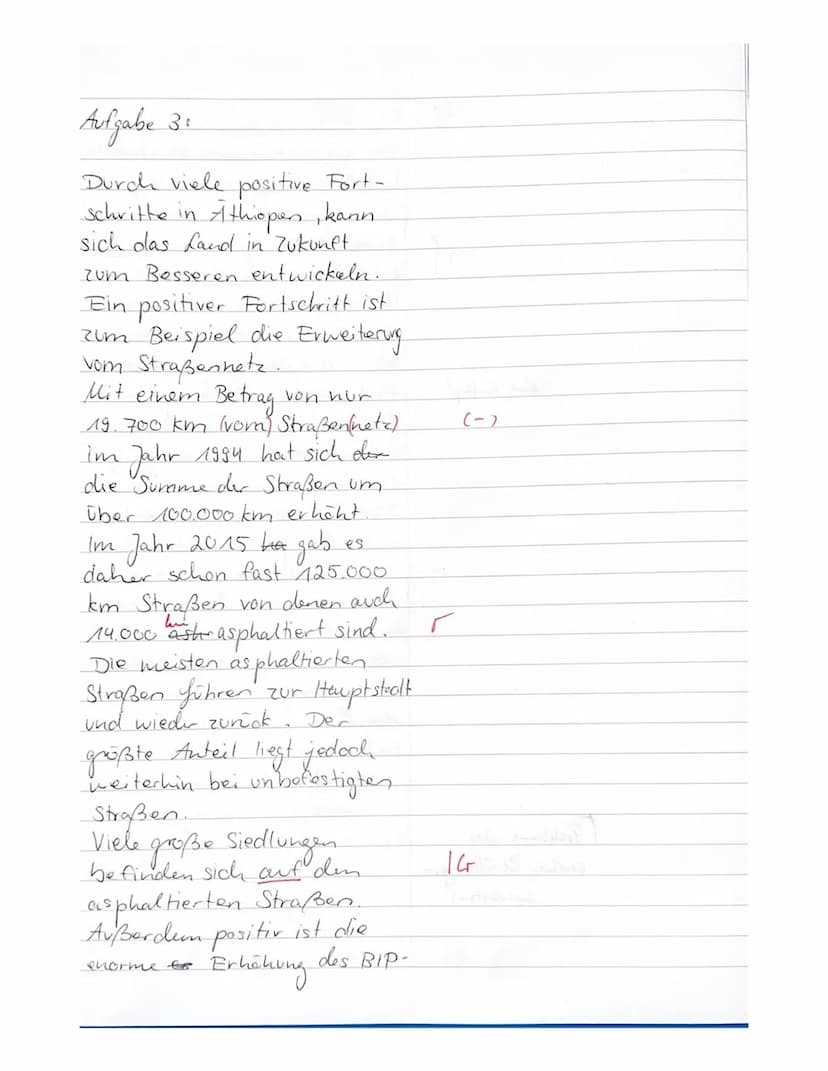 Aufgabe 3:
Durch viele positive Fort-
schritte in Äthiopen, kann
sich das Land in Zukunft
zum Besseren entwickeln.
Ein positiver Fortschritt ist
zum Beispiel die Erweiterung
vom Straßennetz.
Mit einem Betrag von nur
19.700 km (vom) Straßen(netz) (-)
im Jahr 1994 hat sich der
die Summe der Straßen um
über 100.000 km erhöht.
Im Jahr 2015 ha gab es
daher schon fast 125.000
km Straßen von denen auch
14.000 km asph asphaltiert sind. r
Die meisten asphaltierten
Straßen führen zur Hauptstadt
und wieder zurück. Der
größte Anteil liegt jedoch
weiterhin bei unbefestigten
Straßen.
Viele große Siedlungen
befinden sich auf den |Gr
asphaltierten Straßen.
Außerdem positiv ist die
enorme er Erhöhung des BIP-